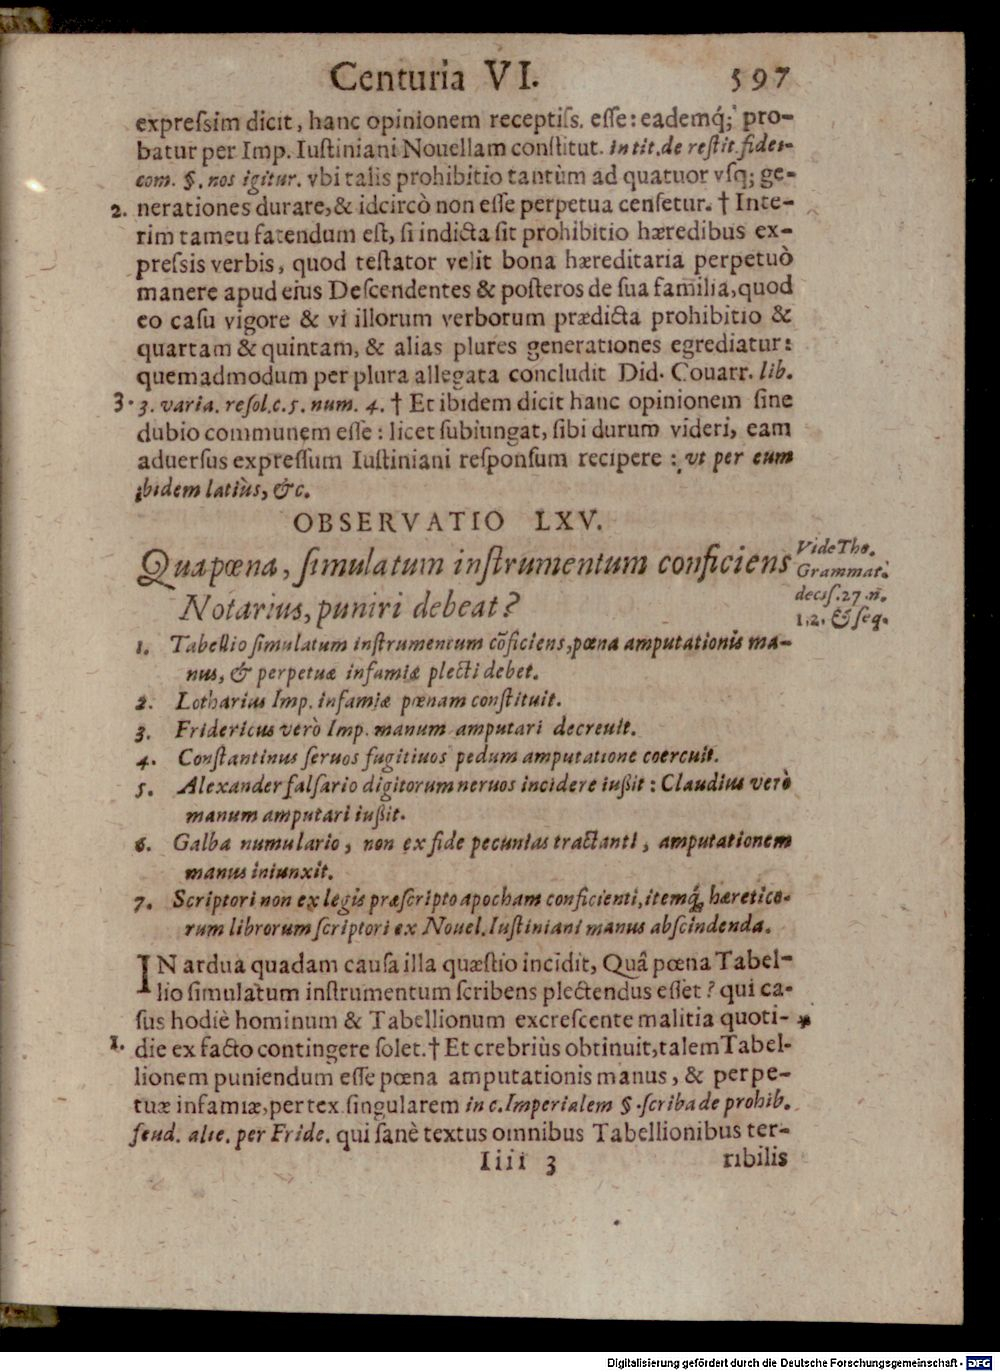 Centuria VI. 597
expreſsim dicit, hanc opinionem receptiſs. eſſe: eademq́; pro-
batur per Imp. Iuſtiniani Nouellam conſtitut. in tit. de reſtit. fidei-
com. §. nos igitur. vbi talis prohibitio tantùm ad quatuor vſq; ge-
2. nerationes durare, & idcircò non eſſe perpetua cenſetur. † Inte-
rim tameu fatendum eſt, ſi indicta ſit prohibitio hæredibus ex-
preſsis verbis, quod teſtator velit bona hæreditaria perpetuò
manere apud eius Deſcendentes & poſteros de ſua familia, quod
eo caſu vigore & vi illorum verborum prædicta prohibitio &
quartam & quintam, & alias plures generationes egrediatur:
quemadmodum per plura allegata concludit Did. Couarr. lib.
3. 3. varia. reſol. c. 5. num. 4. † Et ibidem dicit hanc opinionem ſine
dubio communem eſſe: licet ſubiungat, ſibi durum videri, eam
aduerſus expreſſum Iuſtiniani reſponſum recipere: vt per eum
ibidem latiùs, &c.
OBSERVATIO LXV.
Qua pœna, ſimulatum inſtrumentum conficiens
Notarius, puniri debeat?
Vide Tho.
Grammat.
deciſ. 27. n̄.
1.2. & ſeq.
1. Tabellio ſimulatum inſtrumentum cōficiens, pœna amputationis ma-
nus, & perpetuæ infamiæ plecti debet.
2. Lotharius Imp. infamiæ pœnam conſtituit.
3. Fridericus verò Imp. manum amputari decreuit.
4. Conſtantinus ſeruos fugitiuos pedum amputatione coercuit.
5. Alexander falſario digitorum neruos incidere iußit: Claudius verò
manum amputari iußit.
6. Galba numulario, non ex fide pecunias tractanti, amputationem
manus iniunxit.
7. Scriptori non ex legis præſcripto apocham conficienti, itemq́; hæretico-
rum librorum ſcriptori ex Nouel. Iuſtiniani manus abſcindenda.
IN ardua quadam cauſa illa quæſtio incidit, Quâ pœna Tabel-
lio ſimulatum inſtrumentum ſcribens plectendus eſſet? qui ca-
ſus hodiè hominum & Tabellionum excreſcente malitia quoti- *
1. die ex facto contingere ſolet. † Et crebriùs obtinuit, talem Tabel-
lionem puniendum eſſe pœna amputationis manus, & perpe-
tuæ infamiæ, per tex. ſingularem in c. Imperialem §. ſcriba de prohib.
feud. alie. per Fride. qui ſanè textus omnibus Tabellionibus ter-
Iiii 3 ribilis
Digitalisierung gefördert durch die Deutsche Forschungsgemeinschaft - DFG